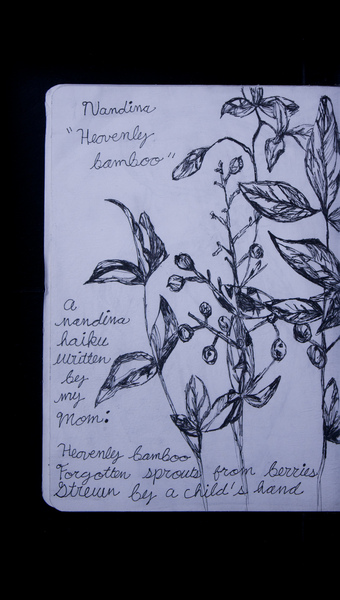 Nandina
"Heavenly
bamboo"
A
nandina
haiku
written
by
my
Mom:
Heavenly bamboo
Forgotten sprouts from berries
Strewn by a child's hand